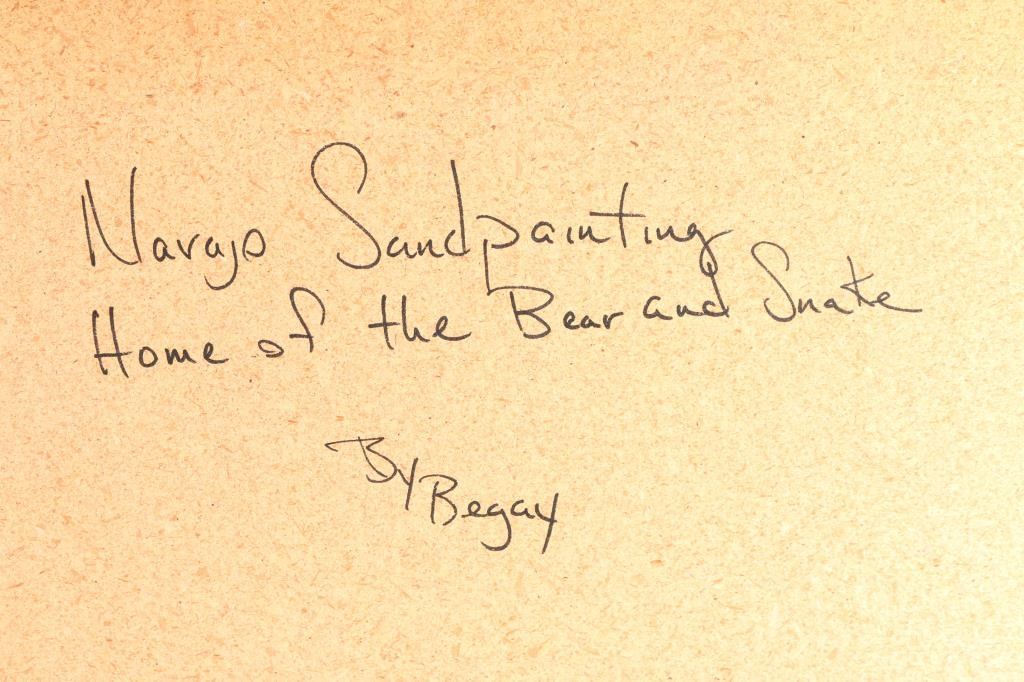 Navajo Sandpainting
Home of the Bear and Snake
By Begay